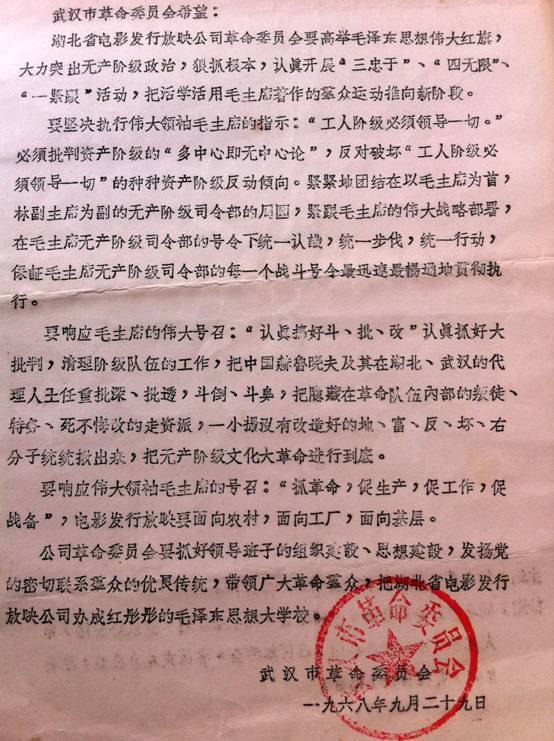 武汉市革命委员会希望：
湖北省电影发行放映公司革命委员会要高举毛泽东思想伟大红旗，
大力突出无产阶级政治，狠抓根本，认真开展“三忠于”、“四无限”、
“一紧跟”活动，把活学活用毛主席著作的群众运动推向新阶段。
要坚决执行伟大领袖毛主席的指示：“工人阶级必须领导一切。”
必须批判资产阶级的“多中心即无中心论”，反对破坏“工人阶级必
须领导一切”的种种资产阶级反动倾向。紧紧地团结在以毛主席为首，
林副主席为副的无产阶级司令部的周围，紧跟毛主席的伟大战略部署，
在毛主席无产阶级司令部的号令下统一认識，统一步伐，统一行动，
保証毛主席无产阶级司令部的每一个战斗号令最迅速最暢通地貫彻执
行。
要响应毛主席的伟大号召：“认真搞好斗、批、改”认真抓好大
批判，清理阶级队伍的工作，把中国赫魯晓夫及其在湖北、武汉的代
理人王任重批深、批透，斗倒、斗臭，把隐藏在革命队伍內部的叛徒、
特务、死不悔改的走资派，一小撮沒有改造好的地、富、反、坏、右
分子统统拔出来，把无产阶级文化大革命进行到底。
要响应伟大领袖毛主席的号召：“抓革命，促生产，促工作，促
战备”，电影发行放映要面向农村，面向工厂，面向基层。
公司革命委员会要抓好领导班子的组织建設、思想建設，发扬党
的密切联系羣众的优良传統，带领广大革命羣众，把湖北省电影发行
放映公司办成红彤彤的毛泽东思想大学校。
武汉市革命委员会
一九六八年九月二十九日
汉市革命委员会